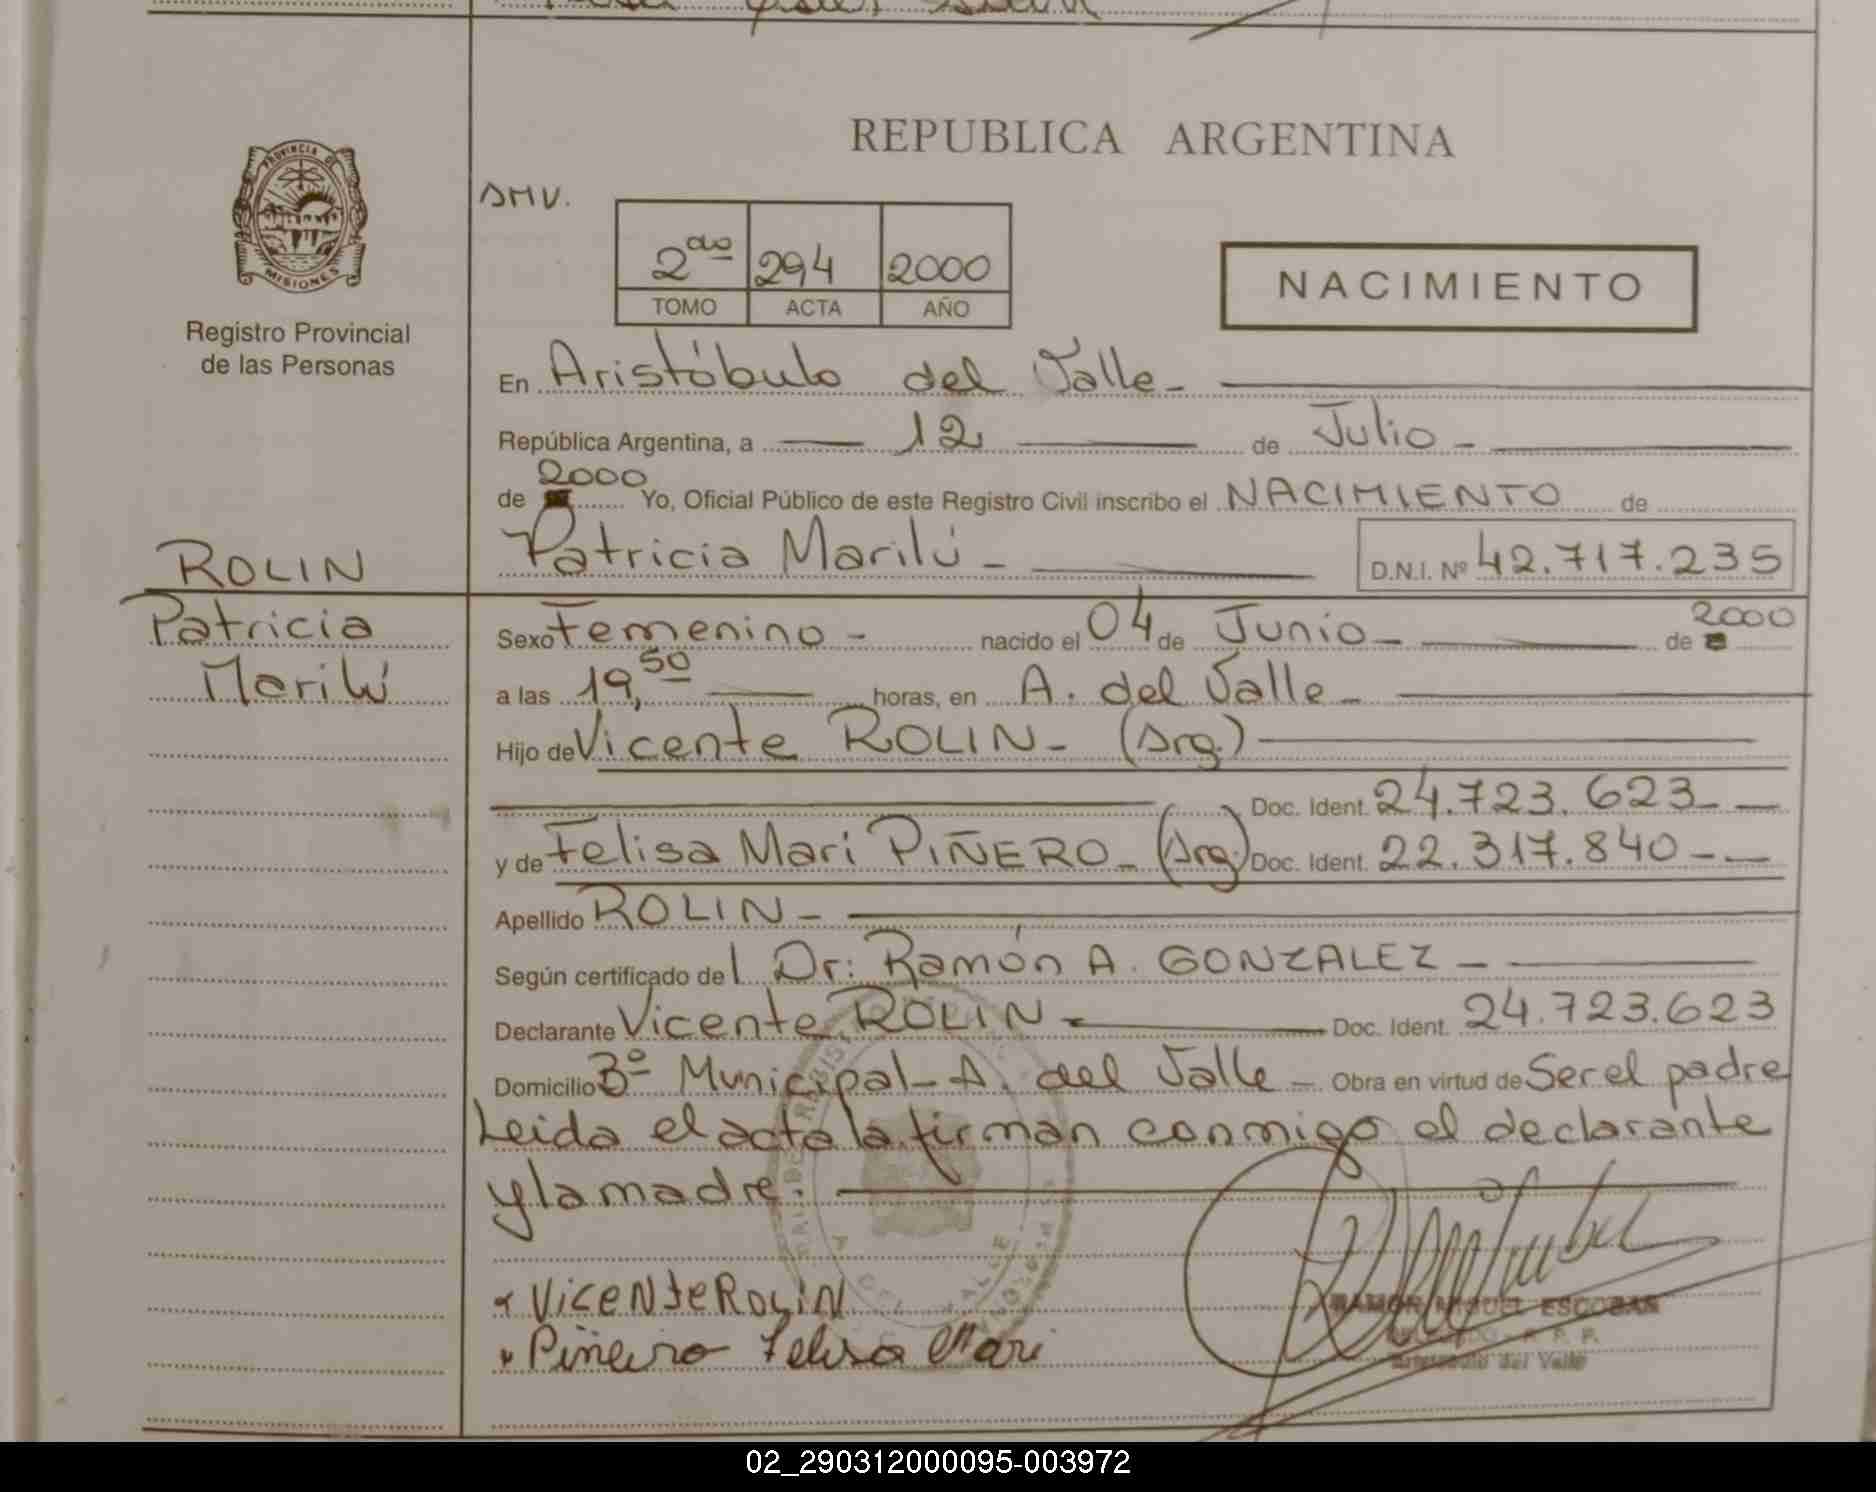 PROVINCIA DE
MISIONES
Registro Provincial
de las Personas
REPUBLICA ARGENTINA
2do 294 2000
TOMO ACTA AÑO
NACIMIENTO
En Aristóbulo del Valle-
República Argentina, a 12 de Julio -
de 2000 Yo, Oficial Público de este Registro Civil inscribo el NACIMIENTO de
Patricia Marilú - D.N.I. Nº 42.717.235
ROLIN
Patricia
Marilú
Sexo Femenino - nacido el 04 de Junio - de 2000
a las 19,50 horas, en A. del Valle -
Hijo de Vicente ROLIN - (Arg.)
Doc. Ident. 24.723.623 - -
y de Felisa Mari PIÑERO - (Arg.) Doc. Ident. 22.317.840 - -
Apellido ROLIN -
Según certificado del Dr: Ramón A. GONZALEZ -
Declarante Vicente ROLIN - Doc. Ident. 24.723.623
Domicilio Bº Municipal - A. del Valle - Obra en virtud de Ser el padre
Leida el acta la firman conmigo el declarante
y la madre.
ViceNte RoLiN
Piñeiro Felisa Mari
RAMON MIGUEL ESCOBAR
Aristobulo del Valle
02_290312000095-003972